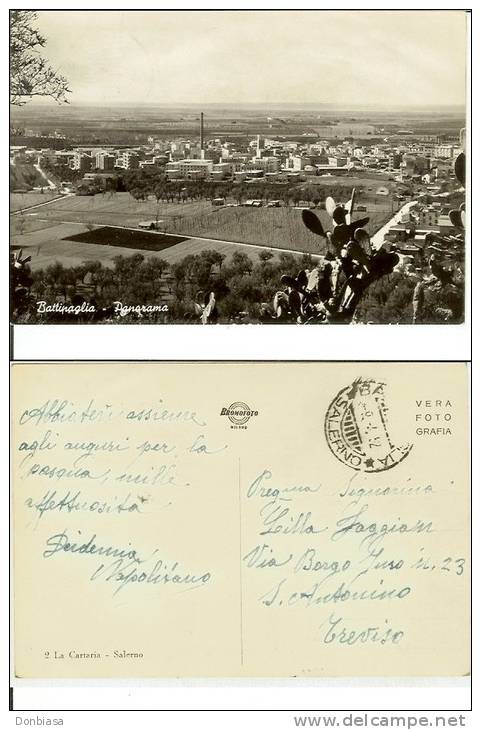 Battipaglia - Panorama
Abbiatevi assieme
agli auguri per la
pasqua, mille
affettuosità
Napolitano
2 La Cartaria - Salerno
BROMOFOTO
MILANO
SALERNO
VERA
FOTO
GRAFIA
Preg.ma Signorina
Lilla Faggian
Via Borgo Furo n. 23
S. Antonino
Treviso
Donbiasa
www.delcampe.net